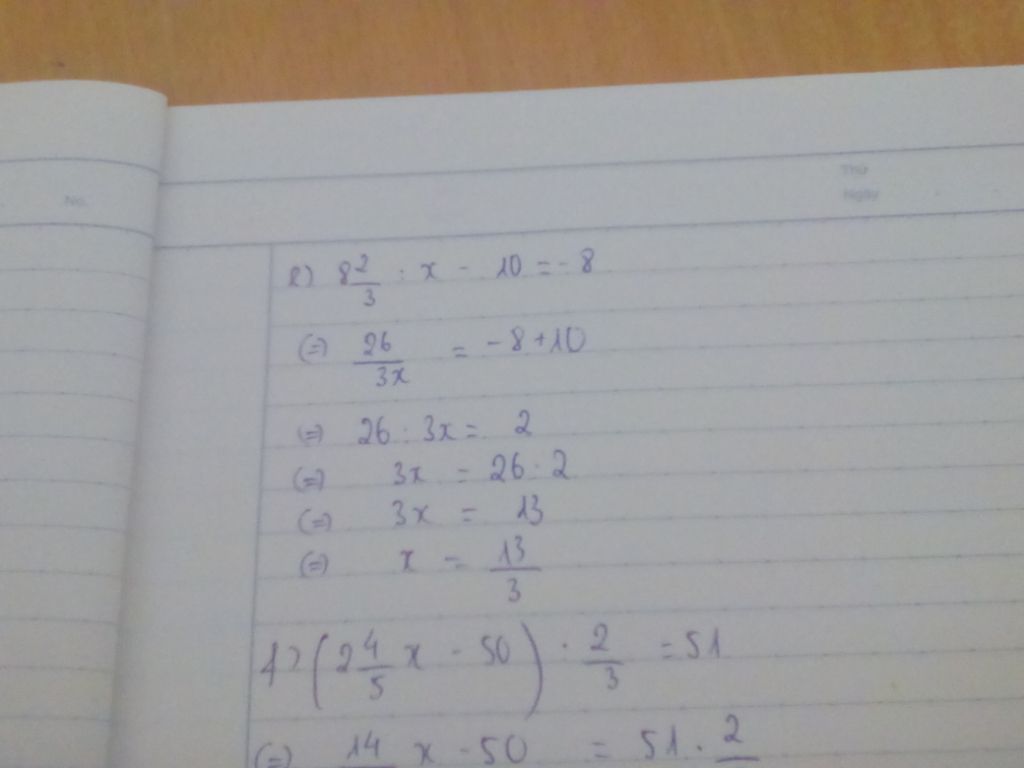 No.
Thứ
Ngày
e) 8 2/3 : x - 10 = - 8
(=) 26/3x = - 8 + 10
(=) 26 : 3x = 2
(=) 3x = 26 : 2
(=) 3x = 13
(=) x = 13/3
f) (2 4/5 x - 50) : 2/3 = 51
(=) 14 x - 50 = 51 . 2